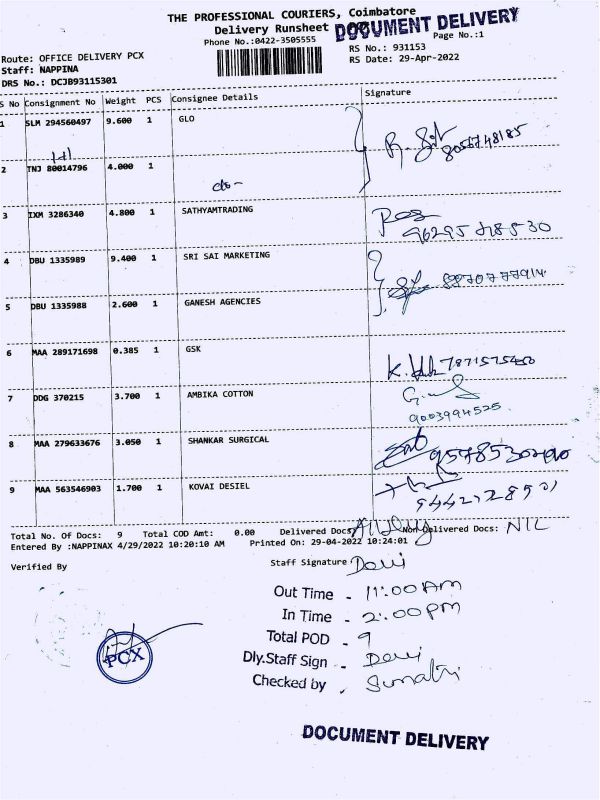 THE PROFESSIONAL COURIERS, Coimbatore
Delivery Runsheet
DOCUMENT DELIVERY
Phone No.:0422-3505555
Page No.:1
Route: OFFICE DELIVERY PCX
RS No.: 931153
Staff: NAPPINA
RS Date: 29-Apr-2022
DRS No.: DCJB93115301
S No Consignment No Weight PCS Consignee Details Signature
1 SLM 294560497 9.600 1 GLO
8055748185
2 TNJ 80014796 4.000 1
do-
3 IXM 3286340 4.800 1 SATHYAMTRADING
4 DBU 1335989 9.400 1 SRI SAI MARKETING
8870777914
5 DBU 1335988 2.600 1 GANESH AGENCIES
6 MAA 289171698 0.385 1 GSK
7 DDG 370215 3.700 1 AMBIKA COTTON
9003994525
8 MAA 279633676 3.050 1 SHANKAR SURGICAL
9 MAA 563546903 1.700 1 KOVAI DESIEL
Total No. Of Docs: 9 Total COD Amt: 0.00 Delivered Docs: Non Delivered Docs: NIL
Entered By :NAPPINAX 4/29/2022 10:20:10 AM Printed On: 29-04-2022 10:24:01
Verified By Staff Signature Devi
Out Time - 11:00 AM
In Time - 2:00 pm
Total POD - 9
Dly.Staff Sign - Devi
Checked by - Sumathi
PCX
DOCUMENT DELIVERY